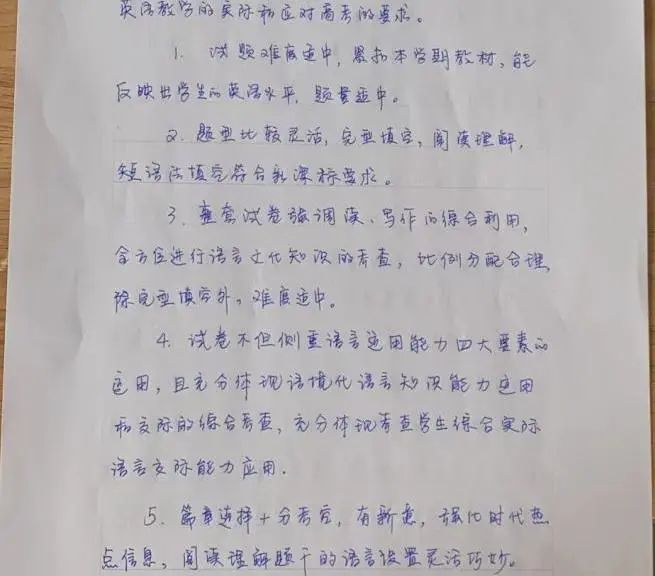 英语教学的实际和应对高考的要求。
1. 试题难度适中，紧扣本学期教材，能
反映出学生的英语水平，题量适中。
2. 题型比较灵活，完型填空，阅读理解，
短语法填空符合新课标要求。
3. 整套试卷强调读、写作的综合利用，
全方位进行语言文化知识的考查，比例分配合理，
除完型填空外，难度适中。
4. 试卷不但侧重语言运用能力四大要素的
运用，且充分体现语境化语言知识能力运用
和交际的综合考查，充分体现考查学生综合实际
语言交际能力应用.
5. 篇章选择十分考究，有新意，强化时代热
点信息，阅读理解题干的语言设置灵活巧妙。